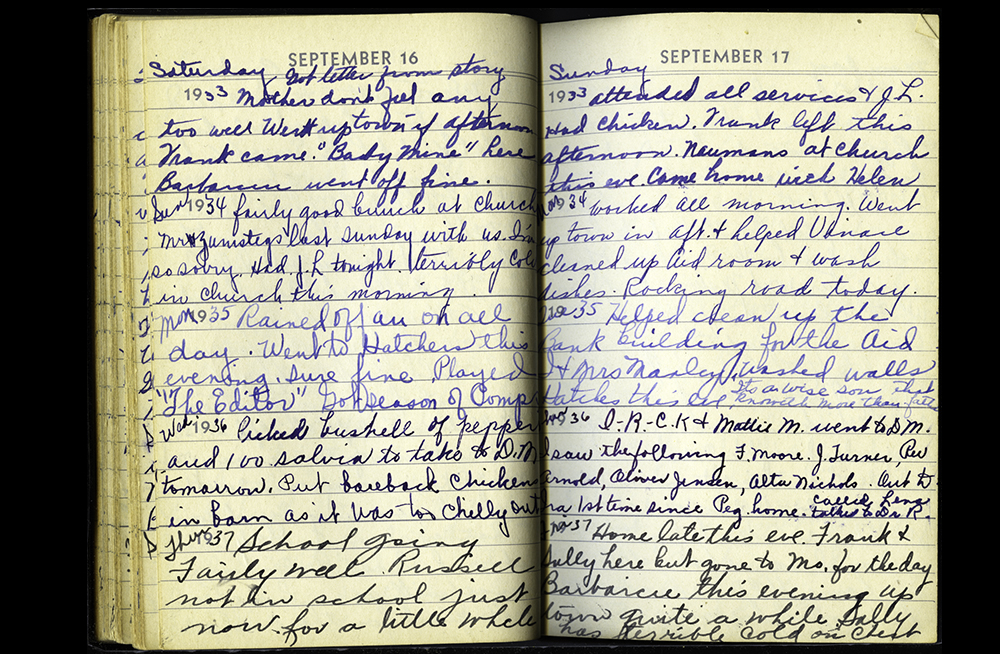 SEPTEMBER 16
Saturday Got letter from story
1933 Mother dont feel any
too well Went uptown if afternoon
Frank came. "Baby Mine" here
Barbarcue went off fine.
Sun 1934 fairly good bunch at church
Mr & Zumstegs last Sunday with us. I'm
so sorry. Had J. L tonight. terribly cold
in church this morning.
Mon 1935 Rained off an on all
day. Went to Hatchers this
evening. Sure fine. Played
"The Editor" Got season of Comp
Wed 1936 Picked bushell of pepper
and 100 salvia to take to D. M
tomorrow. Put bareback chickens
in barn as it was too chilly out
Thurs 37 School going
Fairly well. Russell
not in school just
now for a little while
SEPTEMBER 17
Sunday
1933 attended all services & J. L.
Had chicken. Frank left this
afternoon. Naumans at church
this eve. Came home with Helen
1934 worked all morning. Went
up town in aft. & helped
cleaned up Aid room & wash
dishes. Rocking road today.
35 Helped clean up the
Bank building for the Aid
I & Mrs Manley, washed walls
Hatches this eve. Its a wise son that
knoweth more than father
1936 I-R-C.K & Mattie M. went to D.M.
I saw the following F. Moore. J. Turner,
Arnold, Oliver Jensen, Alta Nichols. Out
1st time since Peg home. called Lena
talked to Dr R.
37 Home late this eve. Frank &
Sally here but gone to Mo. for the day
Barbarcue this evening up
town quite a while Sally
has terrible cold on chest